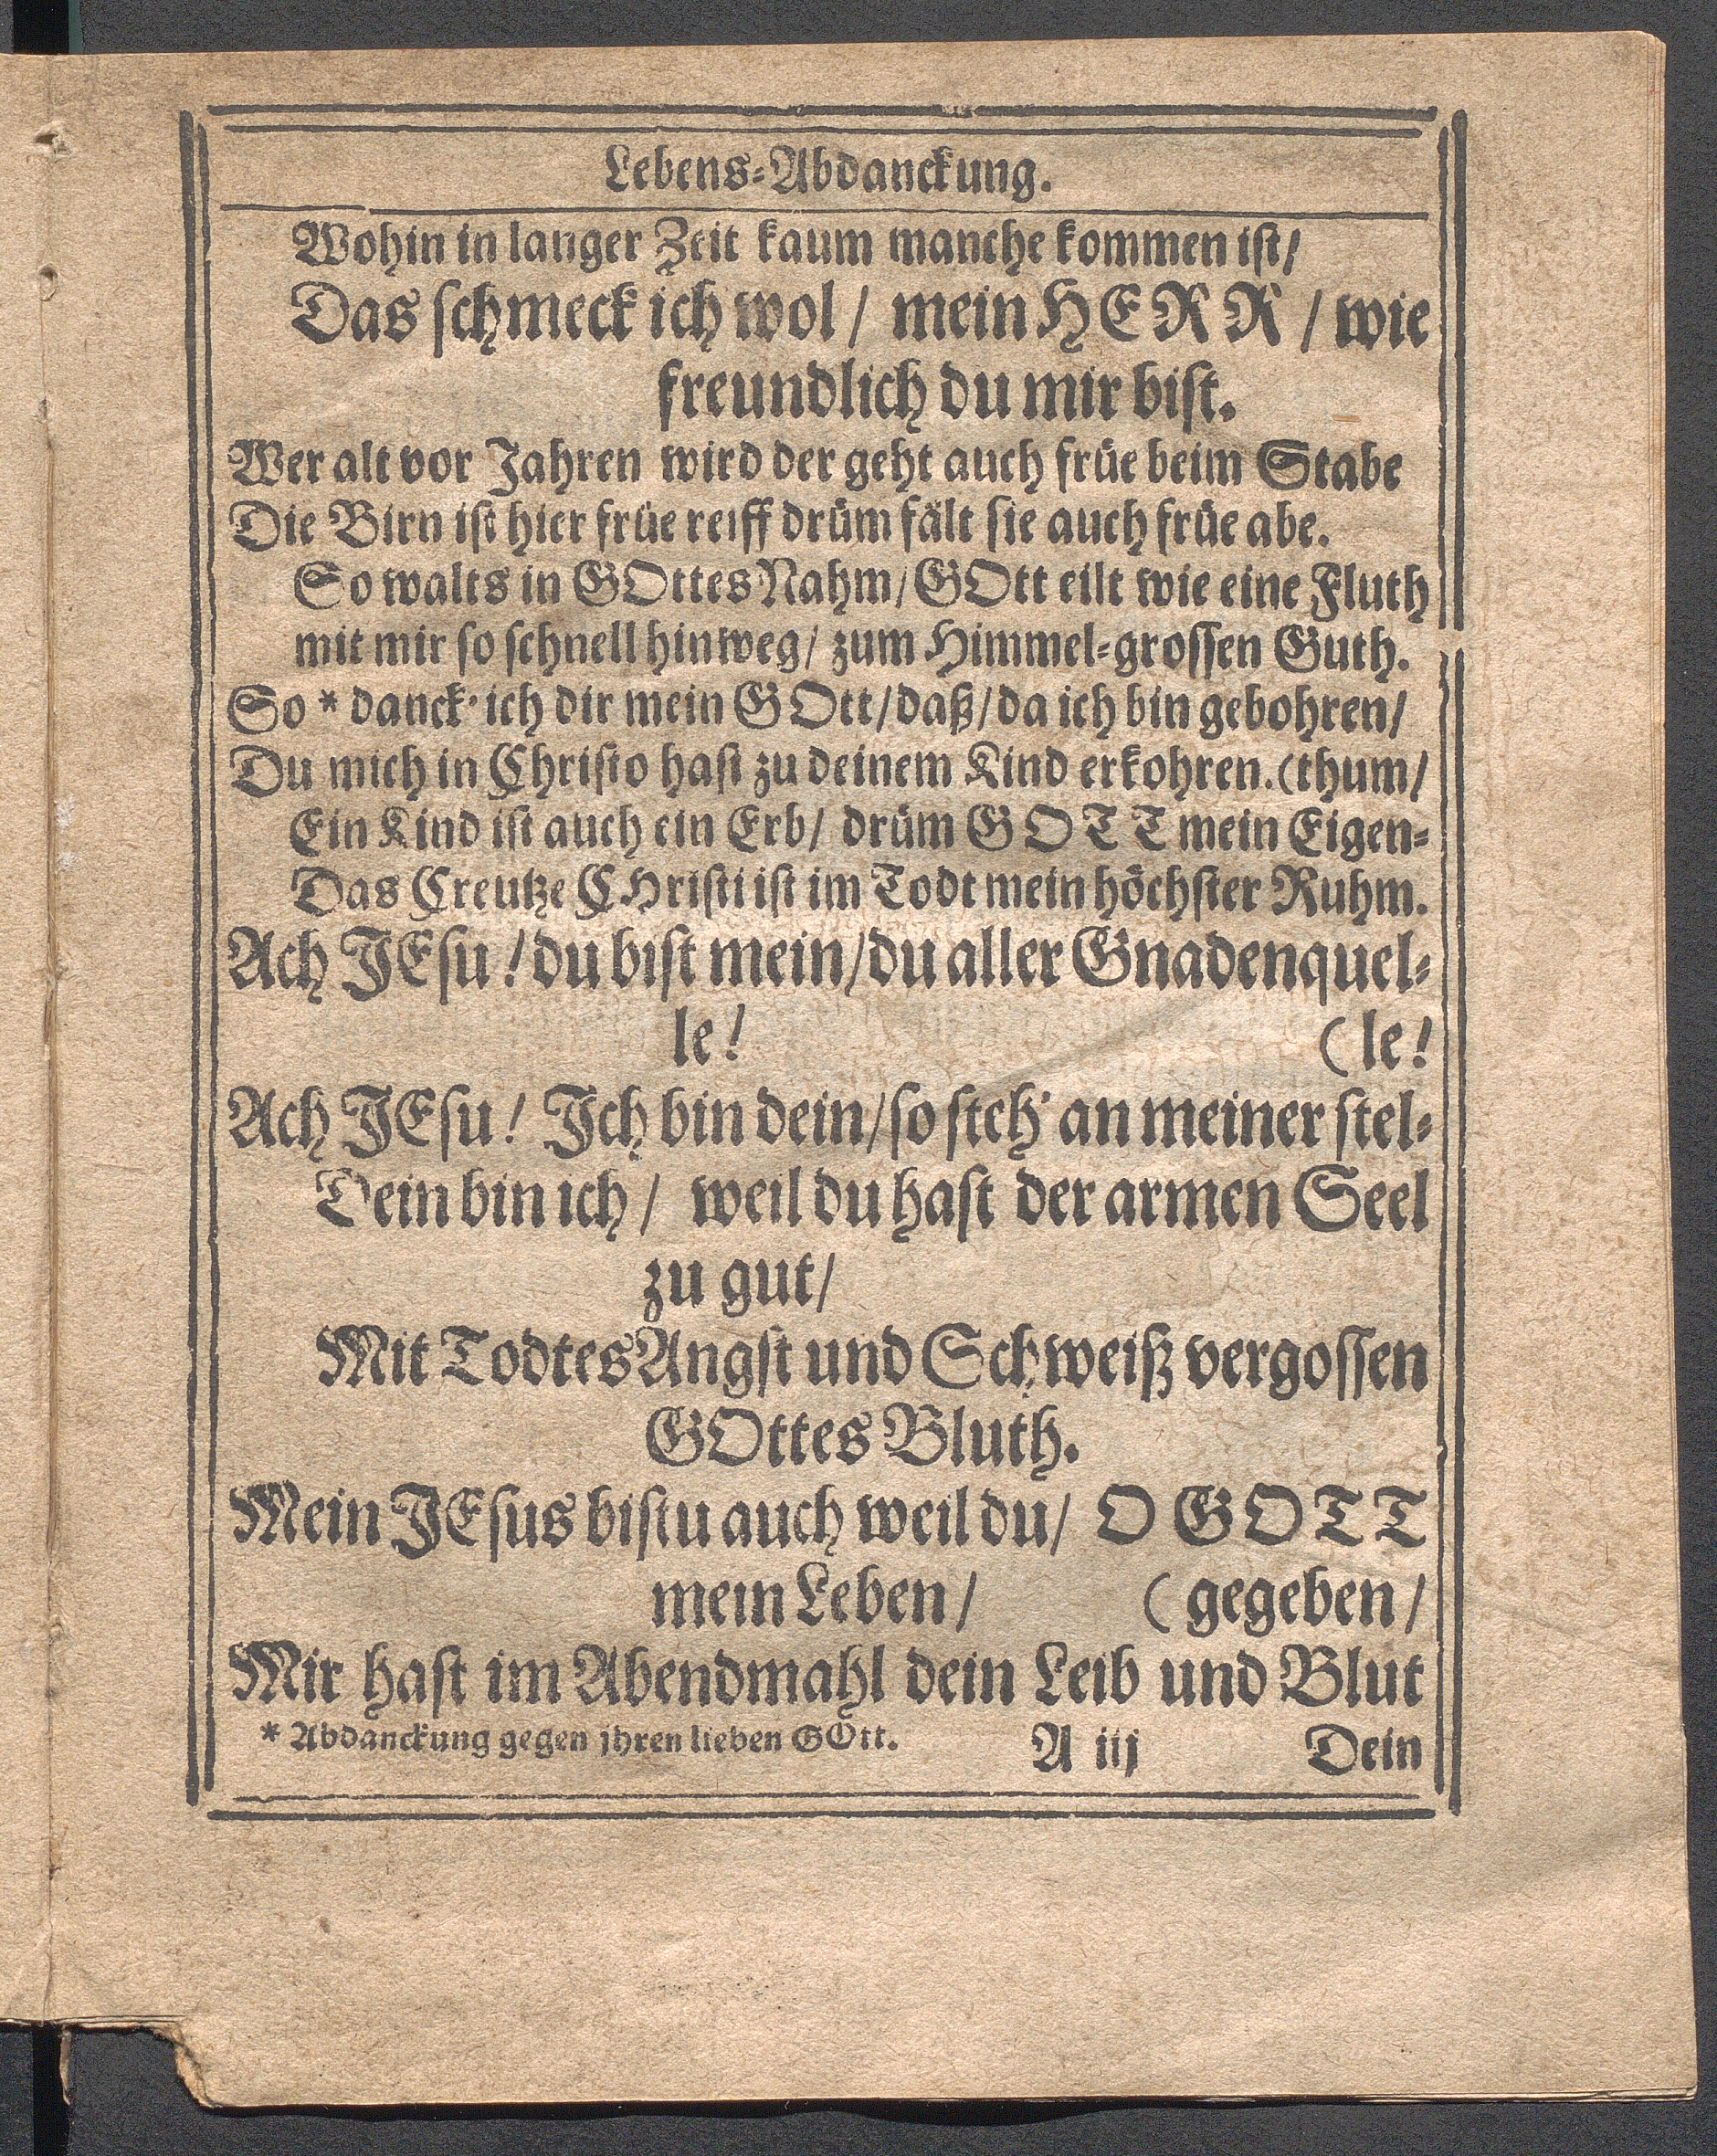 Lebens-Abdanckung.
Wohin in langer Zeit kaum manche kommen ist/
Das schmeck ich wol / mein HERR / wie
freundlich du mir bist.
Wer alt vor Jahren wird der geht auch früe beim Stabe
Die Birn ist hier früe reiff drüm fält sie auch früe abe.
So walts in GOttes Nahm/ GOtt eilt wie eine Fluth
mit mir so schnell hinweg/ zum Himmel-grossen Guth.
So * danck' ich dir mein GOtt/daß/da ich bin gebohren/
Du mich in Christo hast zu deinem Kind erkohren. (thum/
Ein Kind ist auch ein Erb/ drüm GOTT mein Eigen-
Das Creutze CHristi ist im Todt mein höchster Ruhm.
Ach JEsu! du bist mein/du aller Gnadenquel-
le! (le!
Ach JEsu! Ich bin dein/so steh' an meiner stel-
Dein bin ich/ weil du hast der armen Seel
zu gut/
Mit Todtes Angst und Schweiß vergossen
GOttes Bluth.
Mein JEsus bistu auch weil du/ O GOTT
mein Leben/ (gegeben/
Mir hast im Abendmahl dein Leib und Blut
* Abdanckung gegen jhren lieben GOtt. A iij Dein